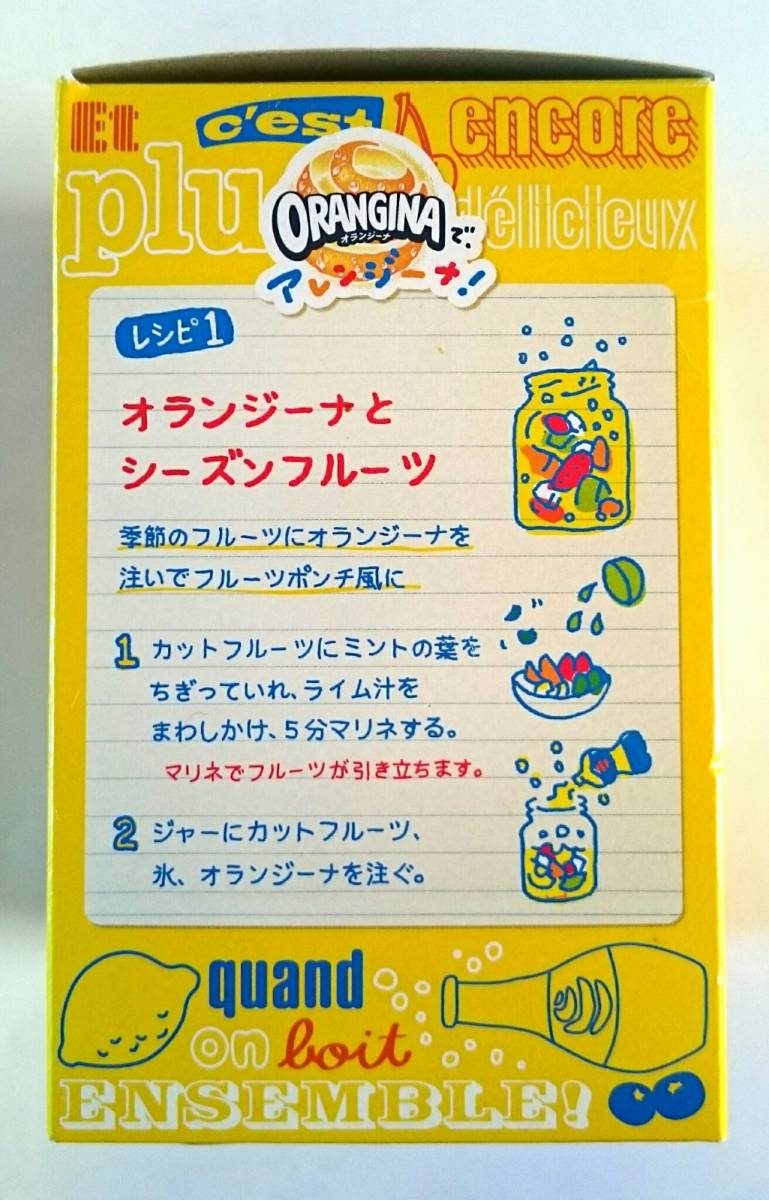 Et c'est encore
plu délicieux
ORANGINA
オランジーナ
で、
アレンジーナ!
レシピ1
オランジーナと
シーズンフルーツ
季節のフルーツにオランジーナを
注いでフルーツポンチ風に
1 カットフルーツにミントの葉を
ちぎっていれ、ライム汁を
まわしかけ、5分マリネする。
マリネでフルーツが引き立ちます。
2 ジャーにカットフルーツ、
氷、オランジーナを注ぐ。
quand
on boit
ENSEMBLE!